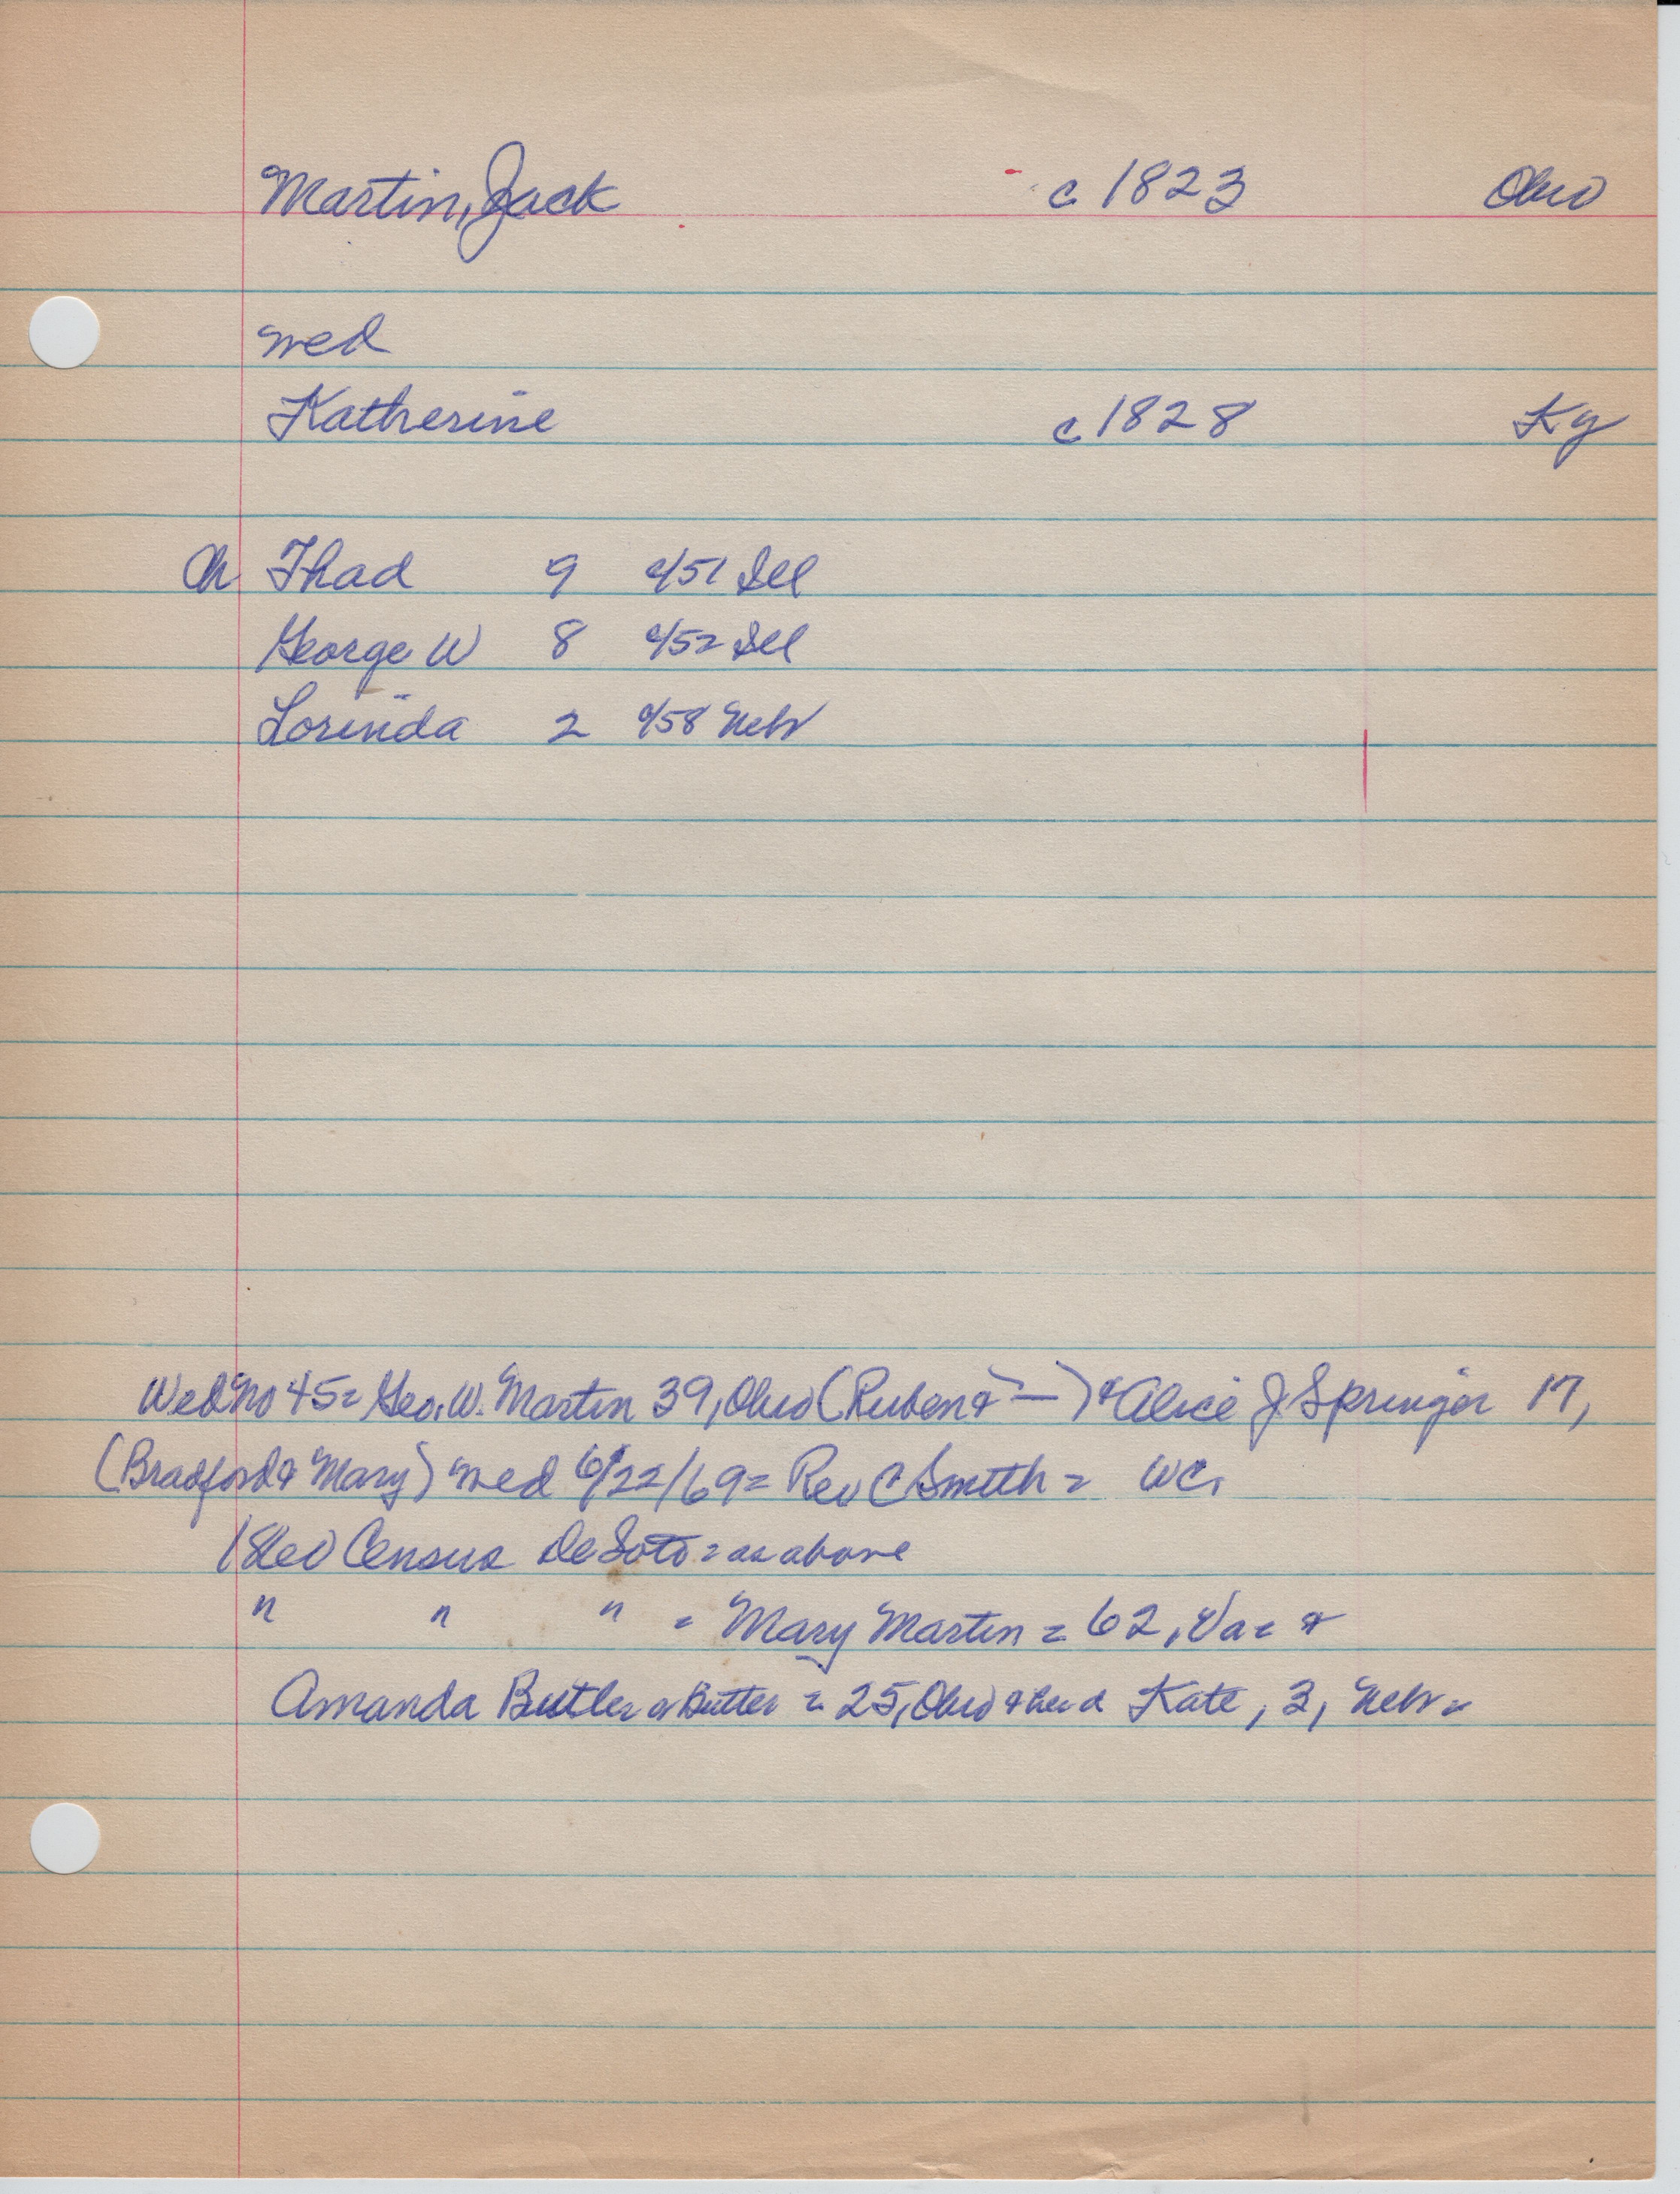 Martin, Jack c 1823 Ohio
wed
Katherine c 1828 Ky
Ch Thad 9 c/51 Ill
George W 8 c/52 Ill
Lorinda 2 c/58 Nebr
Wed No 45= Geo. W. Martin 39, Ohio (Ruben & —) & Alice J Springer 17,
(Bradford & Mary) wed 6/22/69= Rev C Smith = WC.
1860 Census DeSoto = as above
" " " = Mary Martin = 62, Va= &
Amanda Butler or Butter = 25, Ohio & Kate, 3, Nebr =